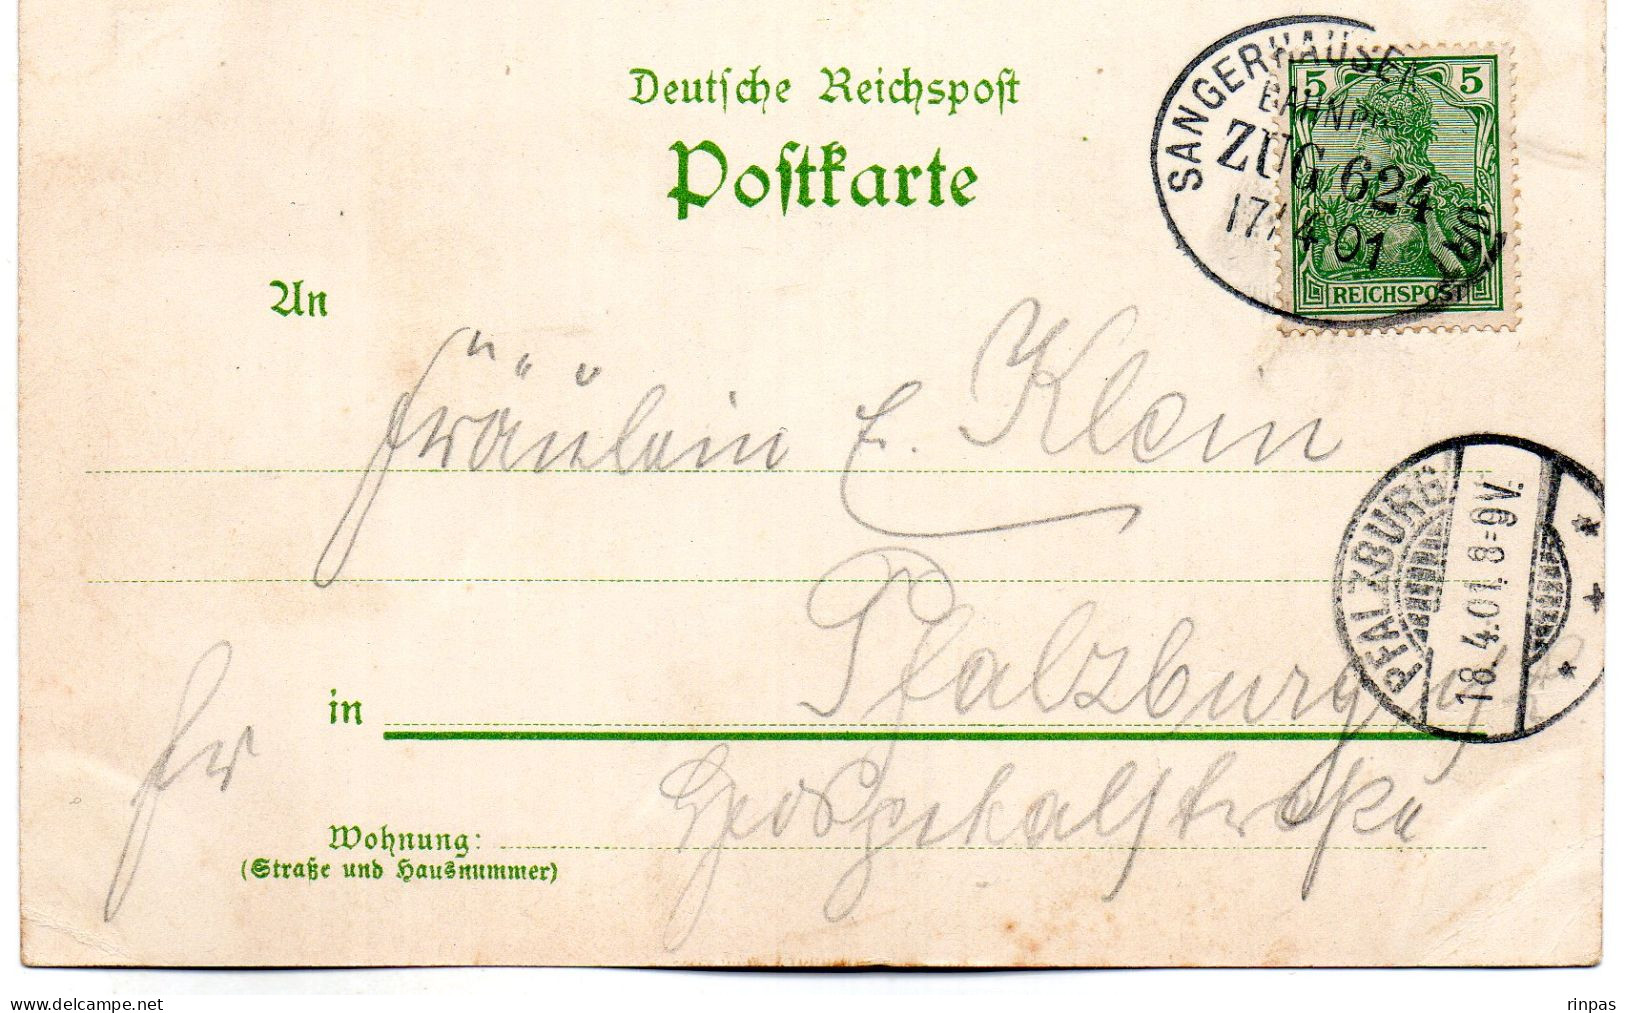 Deutsche Reichspost
Postkarte
SANGERHAUSEN
BAHNP
ZUG 624
17/4 01
5 5
REICHSPOST
An
Fräulein E. Klein
PFALZBURG
18.4.01. 8-9V.
in Pfalzburg
fr
Wohnung:
(Straße und Hausnummer)
www.delcampe.net
rinpas